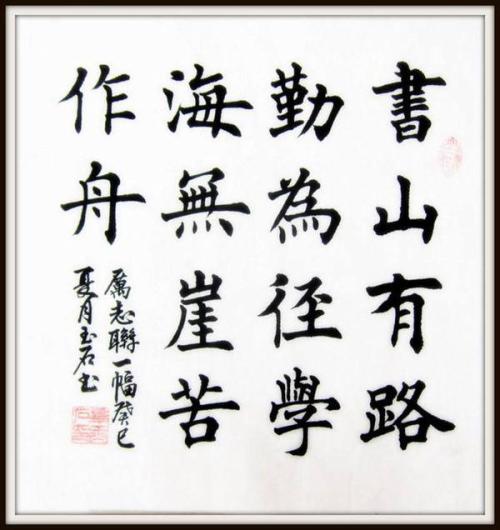 書山有路
勤為徑學
海無崖苦
作舟
厲志聯一幅癸巳
夏月玉石書